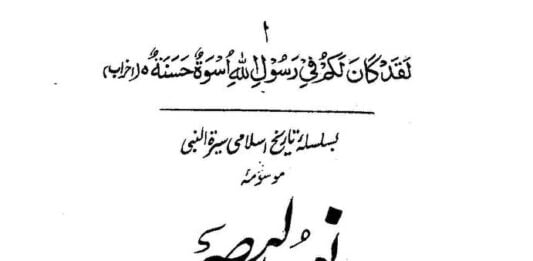 ا
لَقَدْ كَانَ لَكُمْ فِي رَسُولِ اللهِ اُسْوَةٌ حَسَنَةٌ ه (احزاب)
بسلسلۂ تاریخ اسلامی سیرۃ النبی
موسومہ